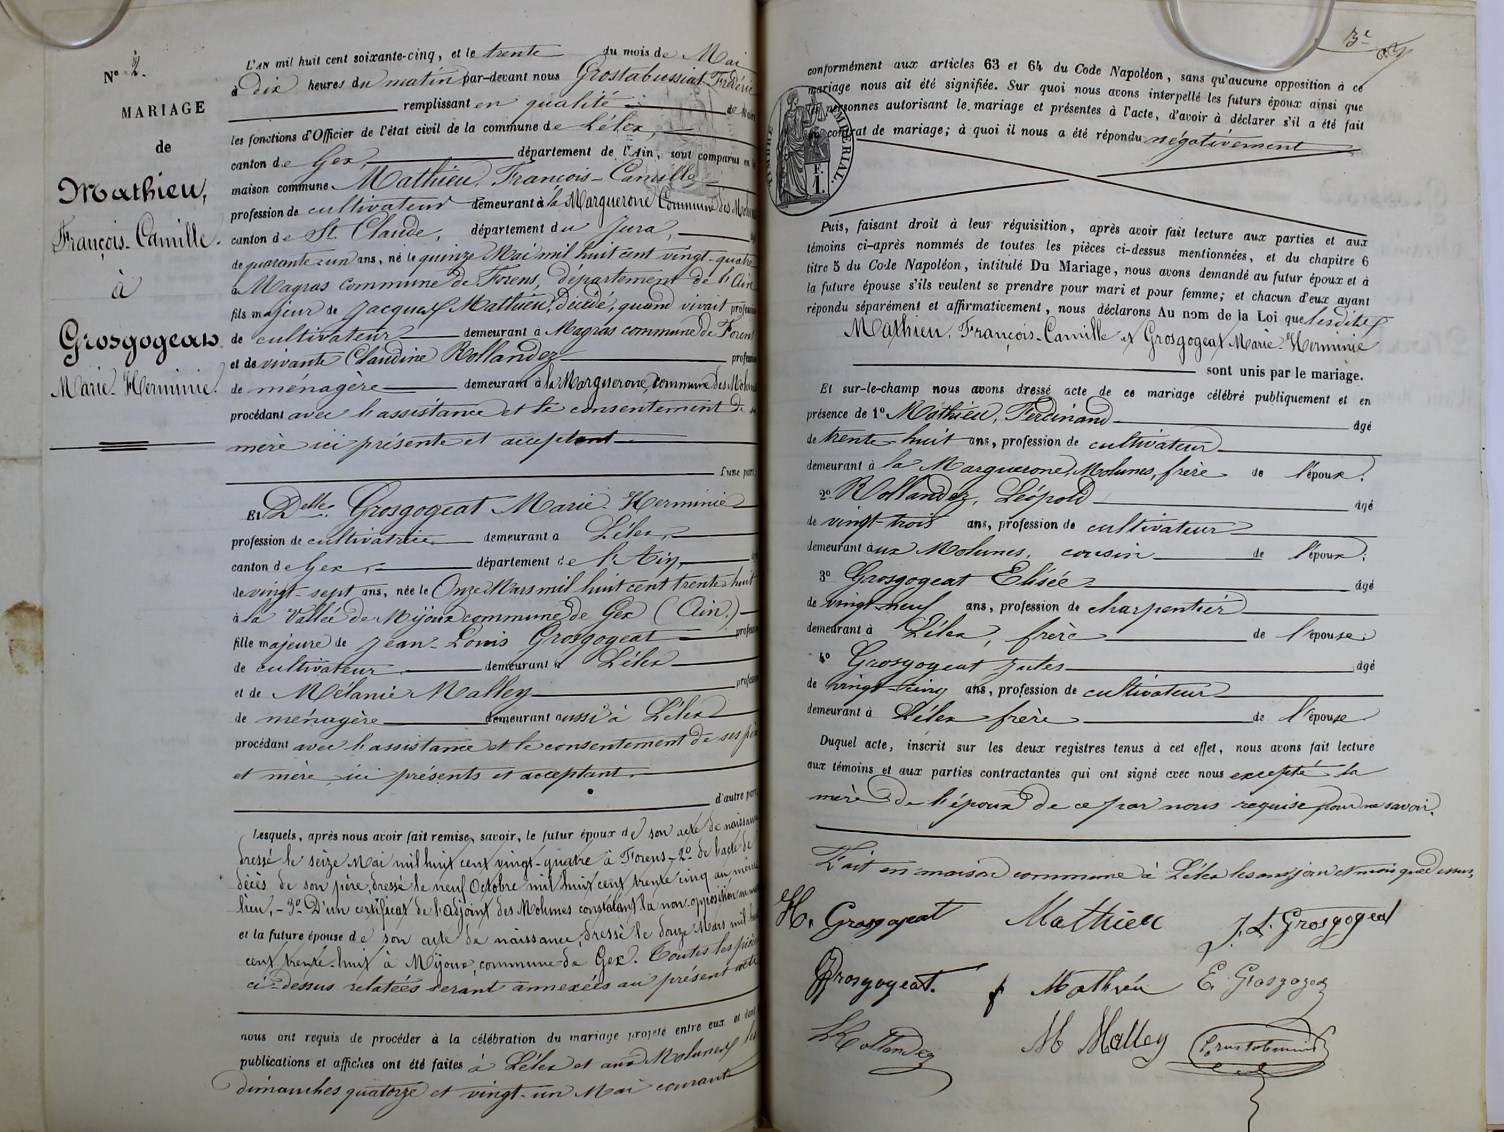 N° 2.
MARIAGE
de
Mathieu,
François-Camille.
à
Grosgogeat
Marie-Herminie.
L'AN mil huit cent soixante-cinq, et le trente du mois de Mai
à dix heures du matin par-devant nous Grostabussiat Frédéric
remplissant en qualité de
les fonctions d'Officier de l'état civil de la commune de Lélex,
canton de Gex département de l'Ain, sont comparus en la
maison commune Mathieu, François-Camille
profession de cultivateur demeurant à la Marguerone Commune des Molunes
canton de St. Claude, département du Jura,
de quarante-un ans, né le quinze Mai mil huit cent vingt-quatre
à Magras commune de Forens, département de l'Ain
fils majeur de Jacques Mathieu, décédé, quand vivait profession
de cultivateur demeurant à Magras commune de Forens
et de vivante Claudine Rollandez profession
de ménagère demeurant à la Marguerone commune des Molunes
procédant avec l'assistance et le consentement de sa
mère ici présente et acceptant
d'une part
Et Delle. Grosgogeat Marie-Herminie
profession de cultivatrice demeurant à Lélex,
canton de Gex, département de l'Ain,
de vingt-sept ans, née le Onze Mars mil huit cent trente huit
à la Vallée de Mijoux commune de Gex (Ain.)
fille majeure de Jean-Louis Grosgogeat profession
de cultivateur demeurant à Lélex
et de Mélanie Malley profession
de ménagère demeurant aussi à Lélex
procédant avec l'assistance et le consentement de ses père
et mère ici présents et acceptant.
d'autre part
Lesquels, après nous avoir fait remise, savoir, le futur époux de son acte de naissance
dressé le seize Mai mil huit cent vingt-quatre à Forens, 2° de l'acte de
décès de son père, dressé le neuf Octobre mil huit cent trente cinq au même
lieu, - 3° D'un certificat de l'adjoint des Molunes constatant la non-opposition au
et la future épouse de son acte de naissance, dressé le douze Mars mil huit
cent trente-huit à Mijoux, commune de Gex. Toutes les pièces
ci-dessus relatées seront annexées au présent acte
nous ont requis de procéder à la célébration du mariage projeté entre eux et dont
publications et affiches ont été faites à Lélex et aux Molunes les
dimanches quatorze et vingt-un Mai courant
conformément aux articles 63 et 64 du Code Napoléon, sans qu'aucune opposition à ce
mariage nous ait été signifiée. Sur quoi nous avons interpellé les futurs époux ainsi que
les personnes autorisant le mariage et présentes à l'acte, d'avoir à déclarer s'il a été fait
un contrat de mariage; à quoi il nous a été répondu négativement
TIMBRE IMPÉRIAL.
Puis, faisant droit à leur réquisition, après avoir fait lecture aux parties et aux
témoins ci-après nommés de toutes les pièces ci-dessus mentionnées, et du chapitre 6
titre 5 du Code Napoléon, intitulé Du Mariage, nous avons demandé au futur époux et à
la future épouse s'ils veulent se prendre pour mari et pour femme; et chacun d'eux ayant
répondu séparément et affirmativement, nous déclarons Au nom de la Loi que lesdits
Mathieu, François-Camille et Grosgogeat Marie-Herminie
sont unis par le mariage.
Et sur-le-champ nous avons dressé acte de ce mariage célébré publiquement et en
présence de 1° Mathieu, Ferdinand âgé
de trente-huit ans, profession de cultivateur
demeurant à la Marguerone, Molunes, frère de l'époux.
2° Rollandez, Léopold âgé
de vingt-trois ans, profession de cultivateur
demeurant aux Molunes, cousin de l'époux.
3° Grosgogeat Elisée âgé
de vingt-neuf ans, profession de charpentier
demeurant à Lélex, frère de l'épouse.
4° Grosgogeat Jules âgé
de vingt-cinq ans, profession de cultivateur
demeurant à Lélex frère de l'épouse
Duquel acte, inscrit sur les deux registres tenus à cet effet, nous avons fait lecture
aux témoins et aux parties contractantes qui ont signé avec nous excepté la
mère de l'époux de ce par nous requise pour ne savoir.
Fait en maison commune à Lélex les an, jour et mois que dessus,
H. Grosgogeat Mathieu J. L. Grosgogeat
Grosgogeat. f Mathieu E Grosgogeat
L Rollandez M Malley Grostabussiat